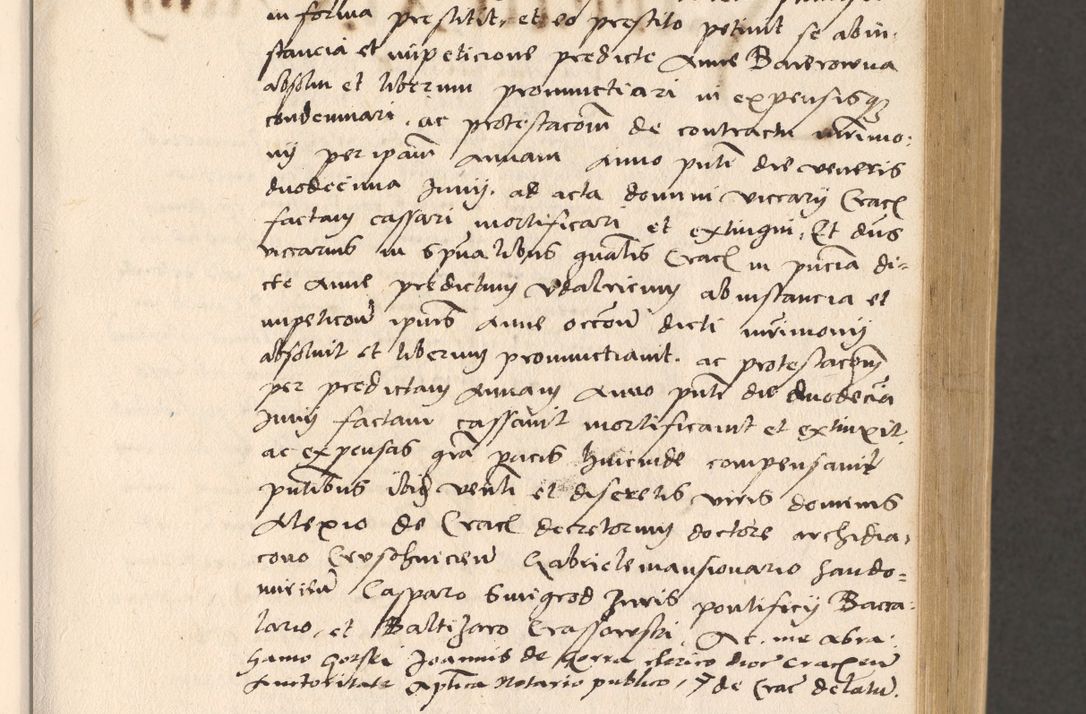 in forma prestitit, et eo prestito petiuit se ab in-
stancia et impeticione predicte Anne Baierowna
absolui et liberum pronunctiari in expensisqz
condemnari, ac protestacom de contractu mrimo-
nij per ipam Annam Anno pnti die veneris
duodecima Junij ad acta domini viccarij Crac
factam cassari mortificari et extingui, Et dns
viccarius in spualibus gnalis Crac in pncia di-
cte Anne predictum Vdalricum ab instancia et
impeticone ipius Anne occone dicti mrimonij
absoluit et liberum pronunctiauit. ac protestacom
per predictam Annam Anno pnti die duodecia
Junij factam cassauit mortificauit et extinxit,
ac expensas gra pacis hincinde compensauit
pntibus ibid venli et discretis viris dominis
Alexio de Crac decretorum doctore archidia-
cono Gabriele mansionario Sando-
mirien Casparo Smigrod Juris pontificij Bacca-
lario, et Baltizaro Crassowski, Ac me Abra-
hamo Gorski Joannis de Gorra clerico dioc Cracien
Auctoritate Aplica Notario publico, de Crac delatu.